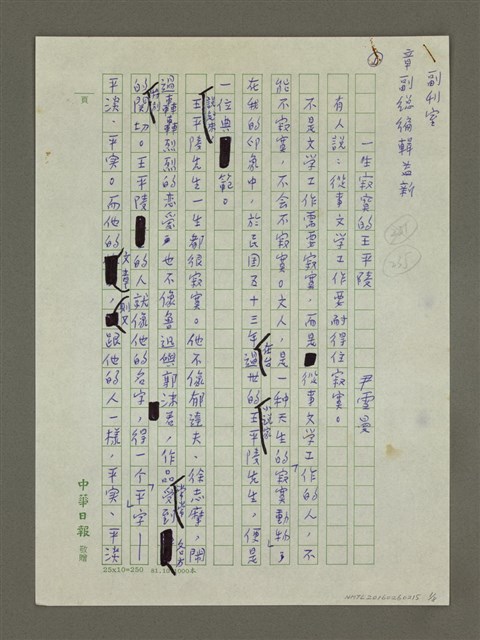 副刊室
章副總編輯益新
一生寂寞的王平陵
尹雪曼
有人說：從事文學工作要耐得住寂寞。
不是文學工作需要寂寞，而是從事文學工作的人，不
能不寂寞，不会不寂寞。文人，是一种天生的「寂寞動物」，
在我的印象中，於民国五十三年在台過世的小說家王平陵先生，便是
一位典範。
說起來王平陵先生一生都很寂寞。他不像郁達夫、徐志摩，鬧
過轟轟烈烈的恋爱；也不像魯迅與郭沫若，作品受到常常各方
的特別関切。王平陵的人就像他的名字，得一个「平」字——
平淡、平实。而他的文章，則又跟他的人一樣，平实、平淡
頁
中華日報 敬贈
25x10=250
NMTL20160260215 1/6